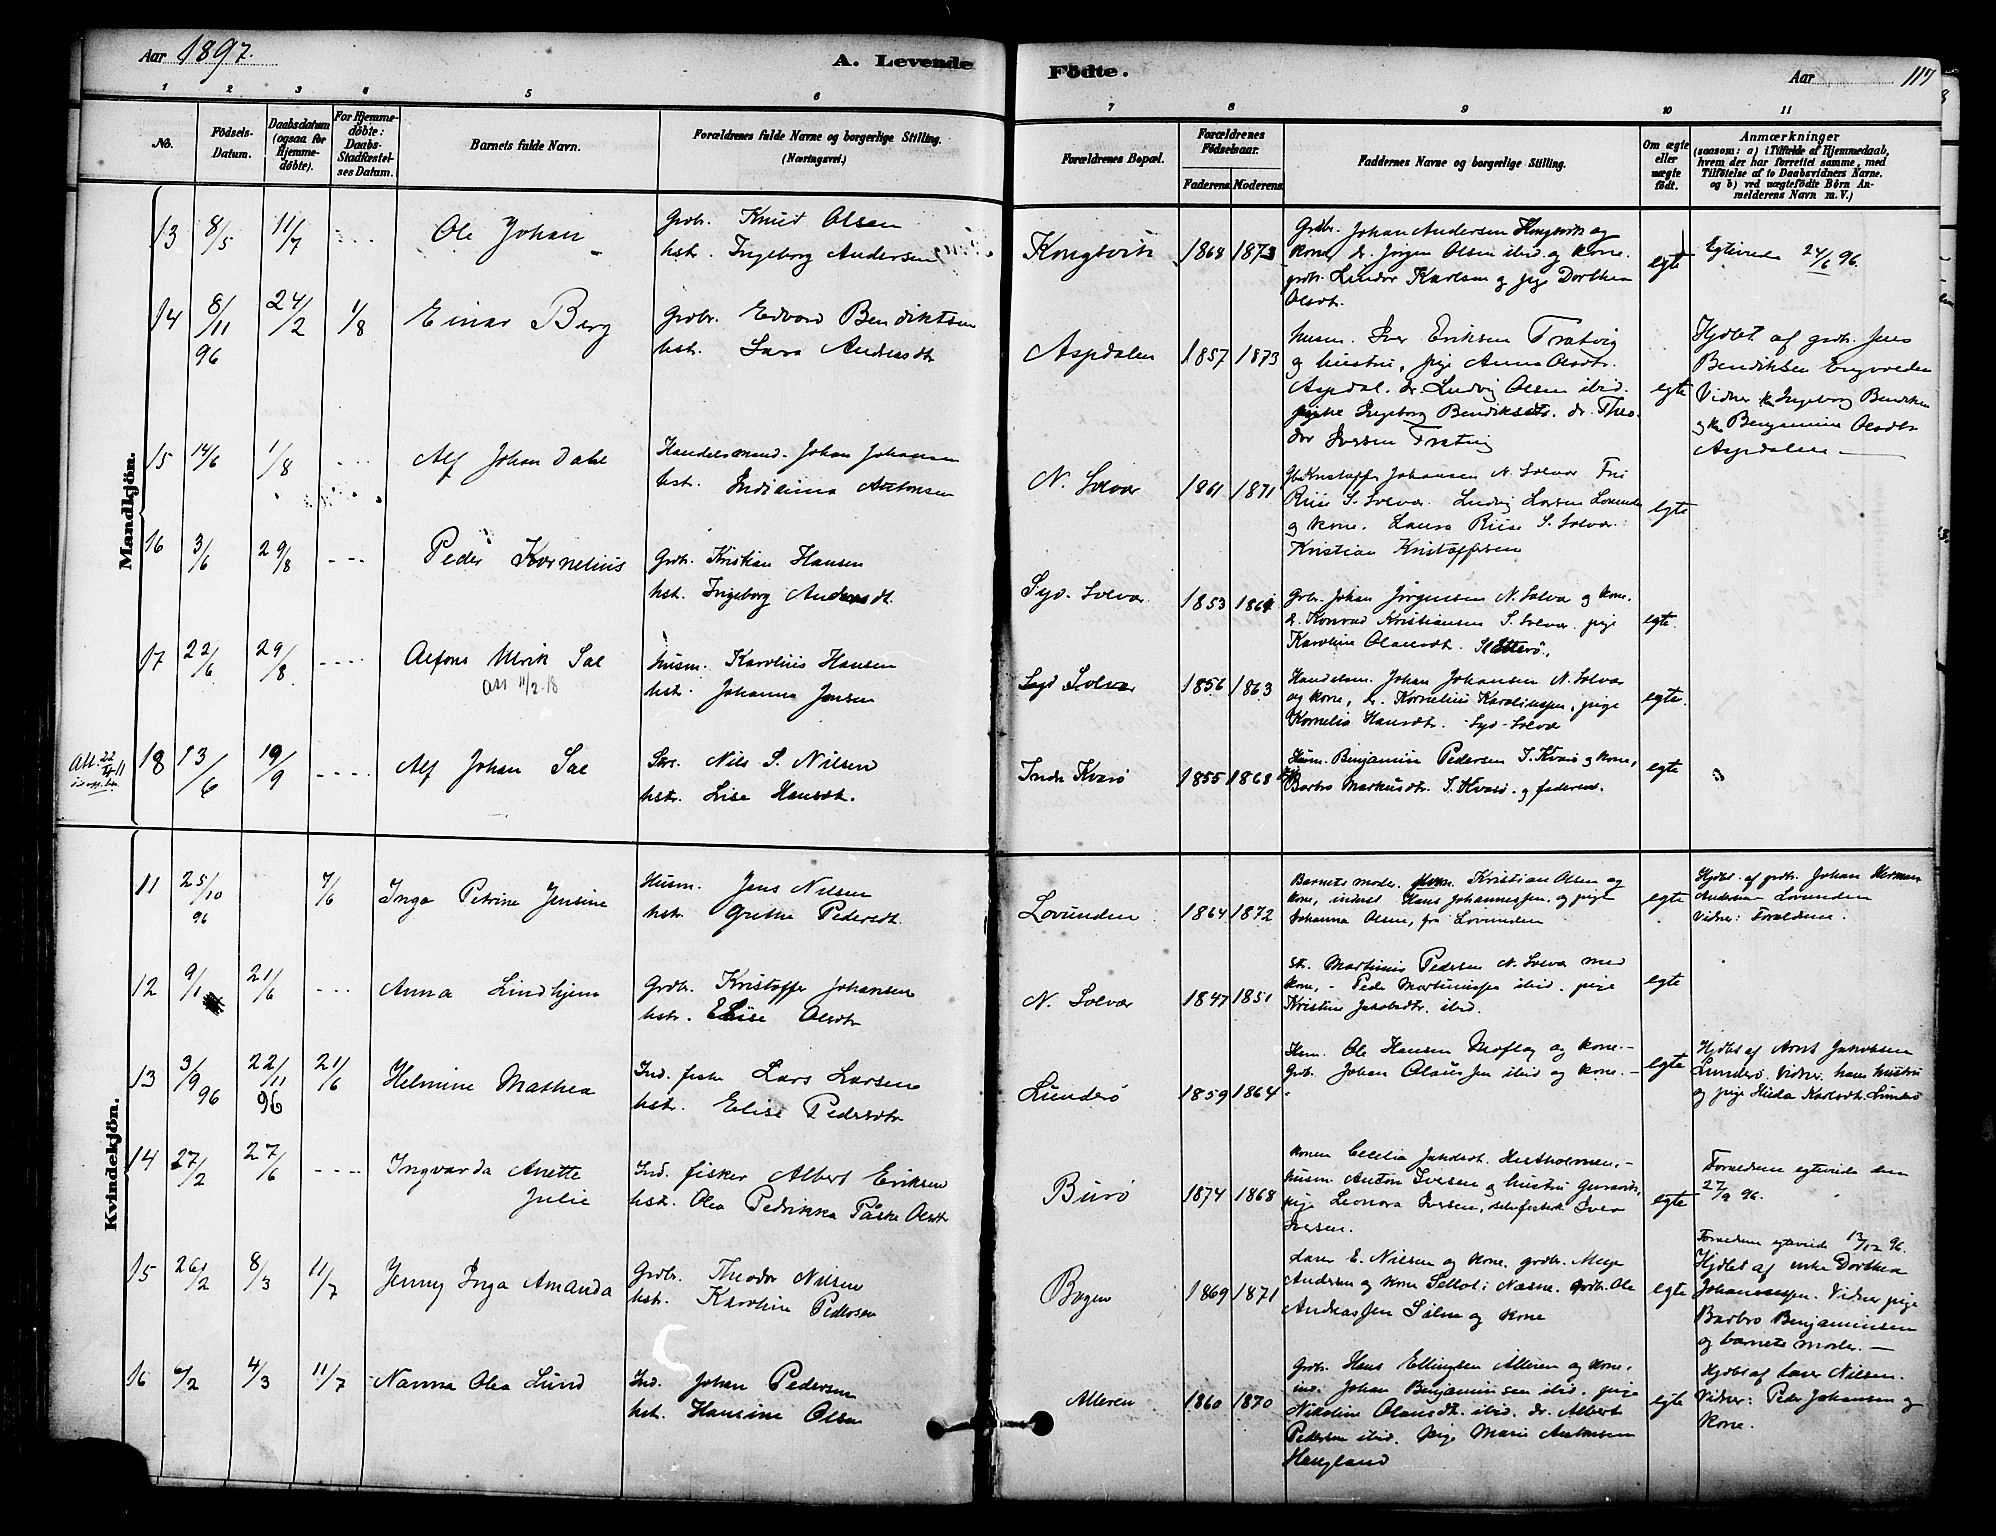 Aar 1897.
A. Levende
Födte.
Aar
117
1 2 3 4 5 6 7 8 9 10 11
No.
Födsels-Datum.
Daabsdatum (ogsaa for Hjemmedöbte).
For Hjemmedöbte: Daabs-Stadfæstelses Datum.
Barnets fulde Navn.
Forældrenes fulde Navne og borgerlige Stilling. (Næringsvei.)
Forældrenes Bopæl.
Forældrenes Födselsaar.
Faderens. Moderens.
Faddernes Navne og borgerlige Stilling.
Om ægte eller uægte födt.
Anmærkninger
(saasom: a) i Tilfælde af Hjemmedaab,
hvem der har forrettet samme, med
Tilföielse af to Daabsvidners Navne.
og b) ved uægtefödte Börn An-
melderens Navn m. V.)
Mandkjön.
13 8/5 11/7 Ole Johan
Grdbr. Knud Olsen
hst. Ingeborg Andersen
Kongsvik 1868 1873
Grdbr. Johan Andersen Kongsvik og
kone, dr. Jörgen Olsen ibid. og kone.
grdbr. Lindor Karlsen og pige Dorthea
Olsdt.
egte
Egteviede 24/6 96.
14 8/11 96 24/2 1/8 Einar Berg
Grdbr. Edvard Bendiktsen
hst. Sara Andersdtr
Aspdalen 1857 1873
husm. Iver Eriksen Tratvig
og hustru, pige Anna Olsdtr.
Aspdal. dr. Ludvig Olsen ibid.
pige Ingeborg Bendiksdtr. dr. Theo-
dor Iversen Tratvig
egte
Hjdbt af grdbr. Jens
Bendiksen
Vidner Ingeborg Bendiksen
og Benjamine Olsdtr
Aspdalen
15 14/6 1/8 Alf Johan Dahl
Handelsmand. Johan Johansen
hst. Indianna Antonsen
N. Solvær 1861 1871
Kristoffer Johansen N. Solvær
Riise S. Solvær. Ludvig Larsen Lovunden
og kone. Laura Riise S. Solvær.
Kristian Kristoffersen
egte
16 3/6 29/8 Peder Kornelius
Grdb. Kristian Hansen
hst. Ingeborg Andersdt.
Syd. Solvær 1853 1864
Grbr. Johan Jörgensen N. Solvær og kone.
dr. Konrad Kristiansen S. Solvær. pige
Karoline Olausdt.
egte.
17 22/6 29/8 Alfons Ulrik Sal
Att 11/2.18
Husm. Karolius Hansen
hst. Johanna Jensen
Syd Solvær 1856 1863
Handelsm. Johan Johansen N. Solvær
og kone, dr. Kornelius Karoliussen, pige
Kornelia Hansdtr. Syd-Solvær
egte.
18 13/6 19/9 Alf Johan Sal
Nils S. Nilsen
hstr. Lise Hansdt.
Indre Kvarö 1855 1868
Husm. Benjamin Pedersen I. Kvarö og kone,
Barbro Markusdtr. I. Kvarö. og faderen.
egte
Kvindekjön.
11 25/10 96 7/6 Inga Petrine Jensine
Husm. Jens Nilsen
hst. Grethe Pedersdt.
Lovunden 1864 1872
Barnets moder. Kristian Olsen og
kone, inderst Hans Johannessen og pige
Johanna Olsen, fra Lovunden
egte
Hjdbt. af grdbr. Johan Herman
Andersen Lovunden
Vidner: Forældrene.
12 9/1 21/6 Anna Lindhjem
Grdbr. Kristoffer Johansen
hstr. Elise Olsdtr
N. Solvær 1847 1851
Martinus Pedersen N. Solvær med
kone, - Peder Martinussen ibid. pige
Kristine Jakobsdtr. ibid.
egte
13 3/9 96 22/11 96 21/6 Helmine Mathea
Ind. fisker Lars Larsen
hst. Elise Pedersdtr
Lunderö 1859 1864
Husm. Ole Hansen Moflag og kone.-
Grdb. Johan Olaussen ibid og kone.-
egte
Hjdbt af Arnt Jakobsen
Lunderö. Vidner, hans hustru
og pige Hilda Karlsdt. Lunderö
14 27/2 27/6 Ingvarda Anette
Julie
Ind. fisker Albert Eriksen
hst. Olea Pedrikka Påske Olsdtr
Burö 1874 1868
konen Cecilia Jakobsdt.
husm Anton Iversen og hustru
pige Leonora Iversen, Iver
Iversen.
egte
Forældrene egteviede den
27/9 96.
15 26/2 8/3 11/7 Jenny Inga Amanda
Grdbr. Theodor Nilsen
hst. Karoline Pedersen
Bogen 1869 1871
Lærer E. Nilsen og kone. grdbr.
Andersen og kone Selsøl; Næsne. grdbr. Ole
Andreassen Silen og kone
egte
Forældrene egteviede 13/12 96.
Hjdbt af enke Dorthea
Johannessen. Vidner pige
Barbro Benjaminsen
og barnets moder.
16 6/2 4/3 11/7 Nanna Olea Lund
Ind. Johan Pedersen
hst. Hansine Olsen
Alteren 1860 1870
Grdbr. Hans Ellingsen Alteren og kone,
ind. Johan Benjaminsen ibid. pige
Nikoline Olausdt. ibid. dr. Albert
Pedersen ibid. pige Marie Antonsen
Haugland
egte
Hjdbt af Lærer Nilsen.
Vidner: Peder Johansen og
kone.